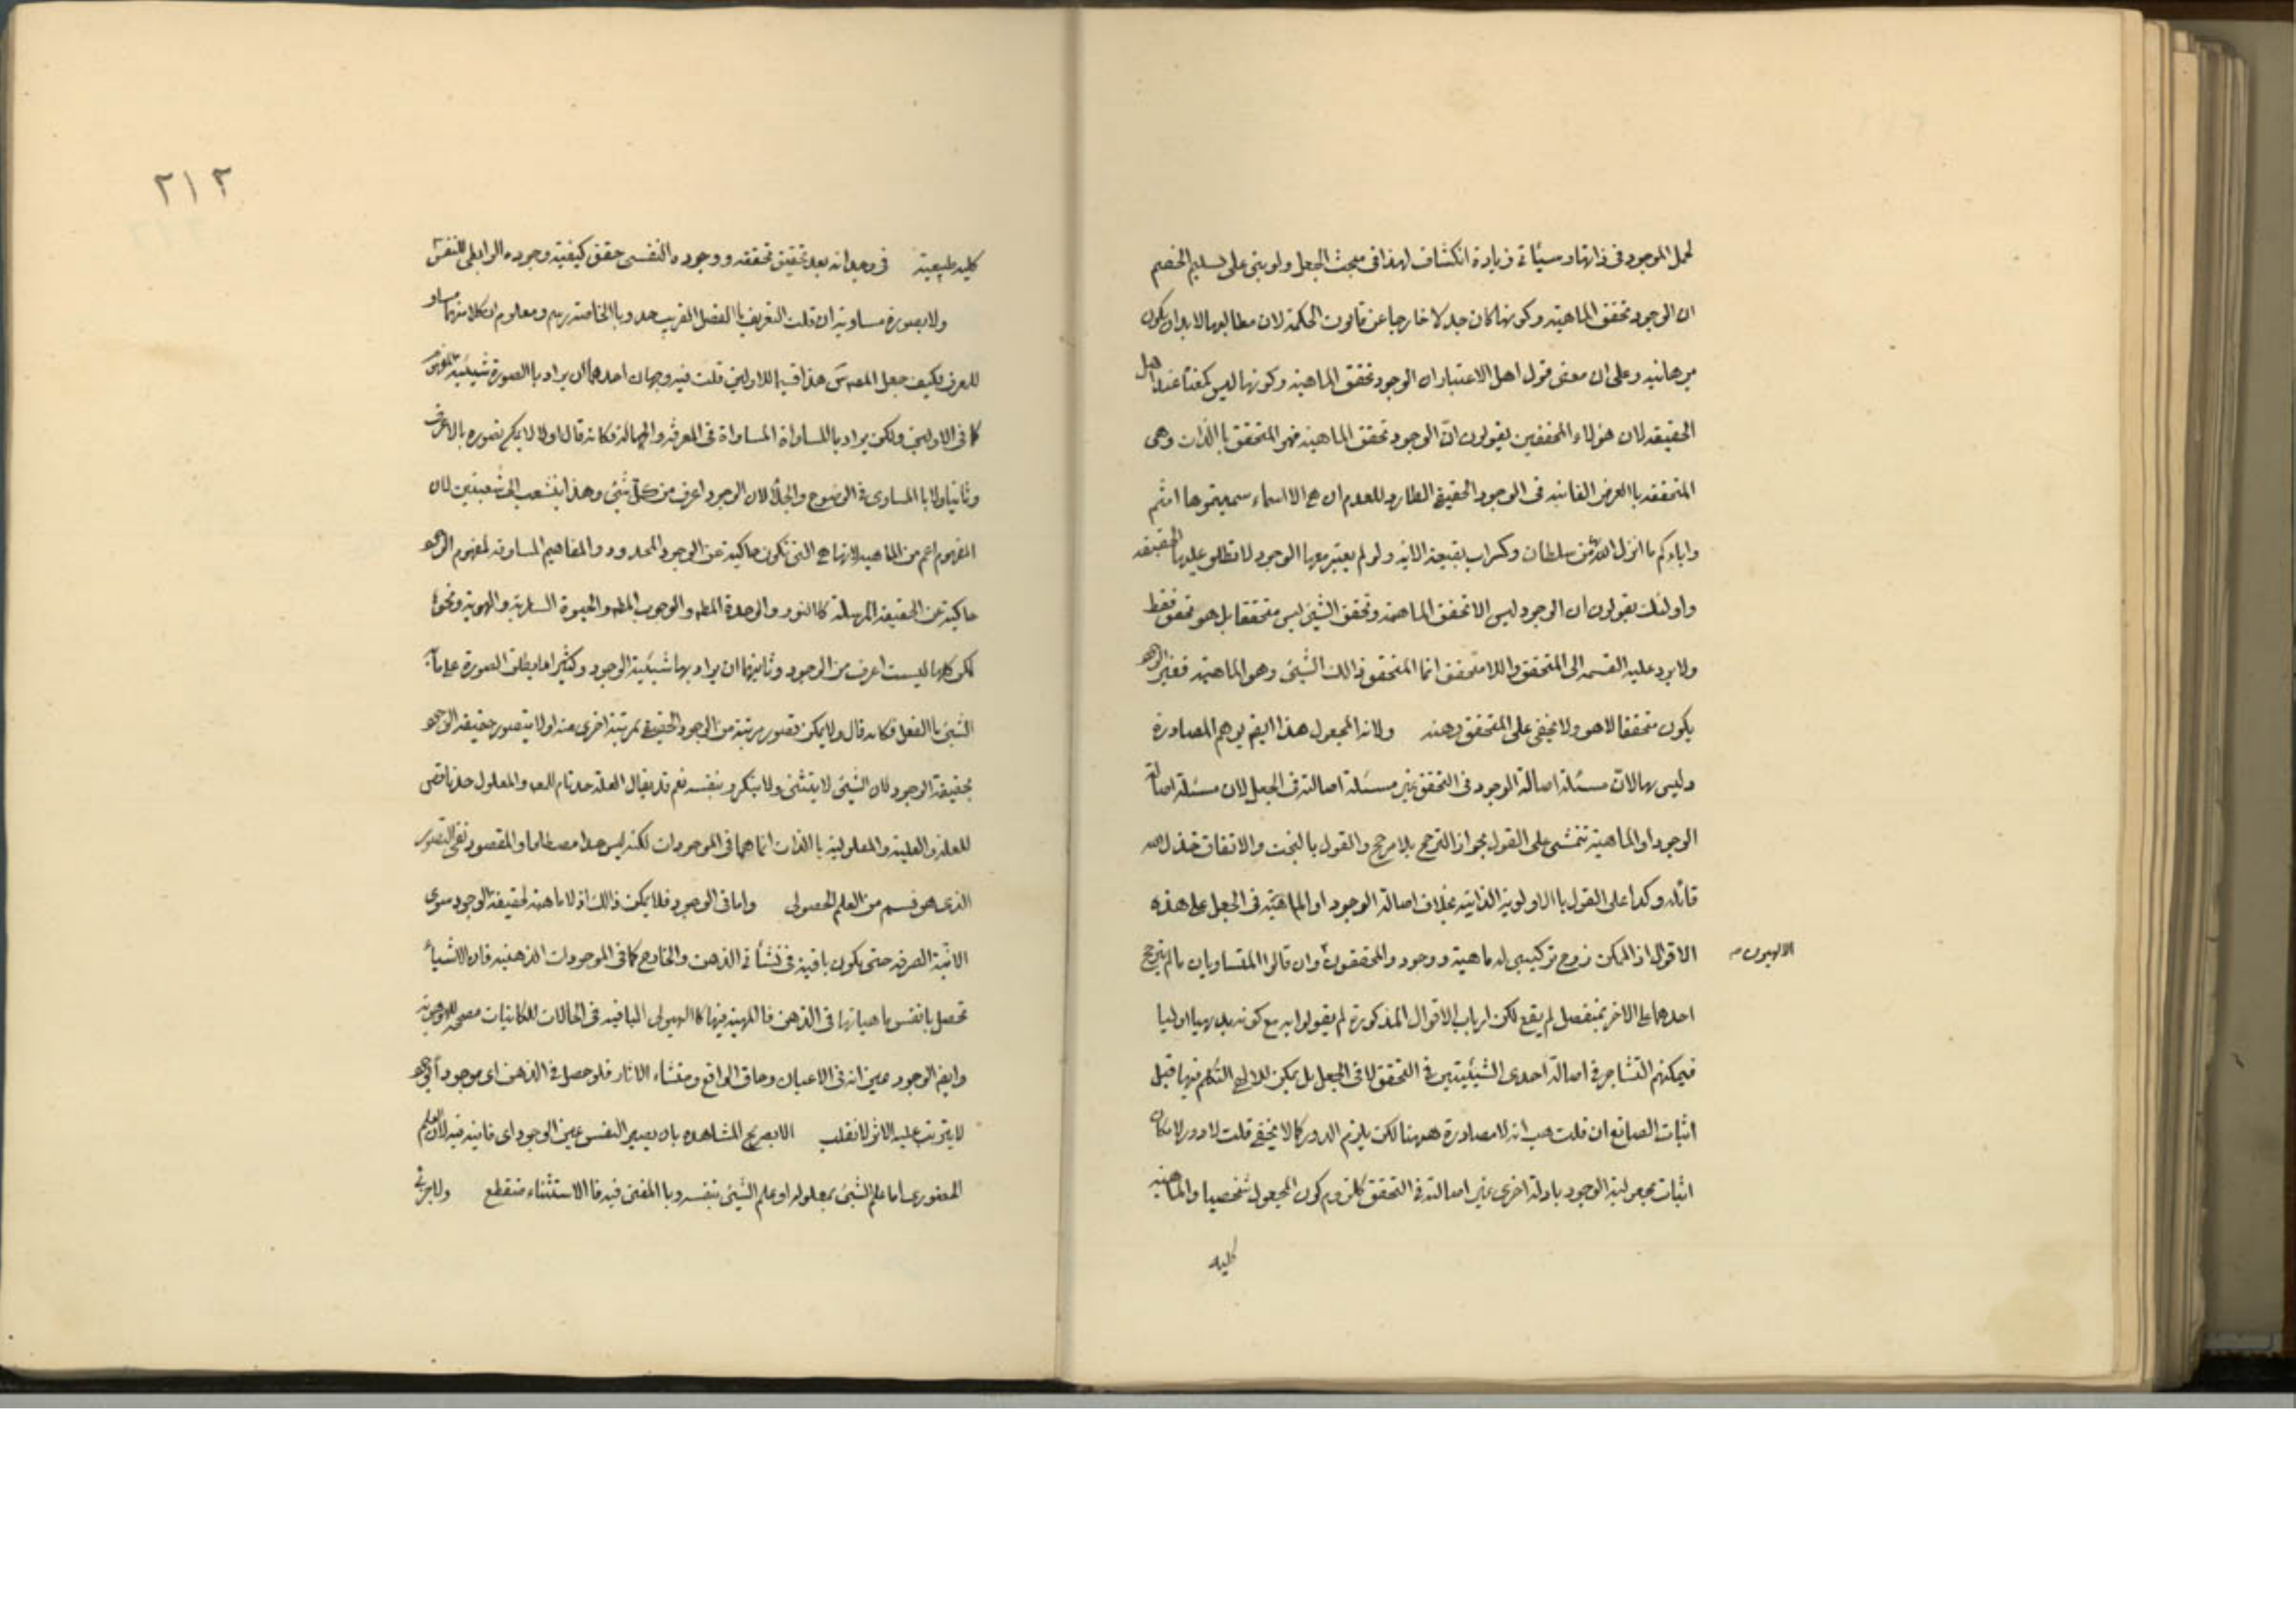 لحمل الموجود فی ذاتها وسیأتی زیادة انکشاف لهذا فی مبحث الجعل ولو بنی علی تسلیم الخصم
ان الوجود تحقق الماهیة وکونها کان جدلا خارجا عن قانون الحکمة لان مطالبها لابد ان یکون
برهانیه وعلی ان معنی قول اهل الاعتبار ان الوجود تحقق الماهیة وکونها لیس کمعناه عند اهل
الحقیقه لان هؤلاء المحققین یقولون انّ الوجود تحقق الماهیة فهو المتحقق باالذات وهی
المتحققه باالعرض الفانیه فی الوجود الحقیقی الطارد للعدم ان هی الا اسماء سمیتموها انتم
واباؤکم ما انزل الله من سلطان وکسراب بقیعة الایه ولو لم یعتبر معها الوجود لا تطلق علیها الحقیقه
واولئک یقولون ان الوجود لیس الا تحقق الماهیة وتحقق الشیئ لیس متحققا بل هو تحقق فقط
ولا یرد علیه القسمه الی المتحقق واللا متحقق انما المتحقق ذالک الشیئ وهو الماهیة فغیر الوجود
یکون متحققا لا هو ولا یخفی علی المتحقق وهنه ولانه المجعول هذا ایضا یوهم المصادرة
ولیس بها لانّ مسئلة اصالة الوجود فی التحقق غیر مسئلة اصالته فی الجعل لان مسئلة اصالة
الوجود او الماهیة تتمشی علی القول بجواز الترجح بلا مرجح والقول بالبخت والاتفاق خذل الله
قائله وکذا علی القول باالاولویة الذاتیه بخلاف اصالة الوجود او الماهیّة فی الجعل علی هذه
الاقوال اذ الممکن زوج ترکیبی له ماهیة ووجود والمحققون وان قالوا المتساویان مالم یترجح
الالهیون
احدهما علی الاخر بمنفصل لم یقع لکن ارباب الاقوال المذکورة لم یقولوا به مع کونه بدیهیا اولیا
فیمکنهم التشاجر فی اصالة احدی الشیئیتین فی التحقق لا فی الجعل بل یمکن للالهی التکلم فیها قبل
اثبات الصانع ان قلت هب انه لا مصادرة ههنا لکن یلزم الدور کما لا یخفی قلت لا دور لامکان
اثبات مجعولیة الوجود بادلة اخری غیر اصالته فی التحقق کلزوم کون المجعول شخصیا والماهیة
کلیه
۲۱۲
کلیه طبیعیة فی وجدانه بعد تحقیق تحققه ووجوده النفسی حقق کیفیة وجوده الرابطی للنفس
ولا بصورة مساویة ان قلت التعریف باالفصل القریب حد وباالخاصة رسم ومعلوم ان کلا منهما مساو
للمعرف فکیف جعل المص هذا قسیما للاولین قلت فیه وجهان احدهما ان یراد باالصورة شیئیة المفهوم
کما فی الاولین ولکن یراد باالمساواة المساواة فی المعرفة والجهالة فکانه قال اولا لا یمکن تصوره بالاعرف
وثانیا ولا باالمساوی فی الوضوح والجلاء لان الوجود اعرف من کلّ شیئ وهذا ینشعب الی شعبتین لان
المفهوم اعم من الماهیة لانها هی التی تکون حاکیة عن الوجود المحدود والمفاهیم المساوقة لمفهوم الوجود
حاکیة عن الحقیقة المرسلة کاالنور والوحدة المطه والوجوب المطه والحیوة الساریة والهویة ونحوها
لکن کلها لیست اعرف من الوجود وثانیهما ان یراد بها شیئیة الوجود وکثیرا ما یطلق الصورة علی ما به
الشیئ باالفعل فکانه قال ولا یمکن تصور مرتبة من الوجود الحقیقی بمرتبة اخری منه او لا یتصور حقیقة الوجود
بحقیقة الوجود لان الشیئ لا یتثنی ولا یتکرر بنفسه نعم قد یقال العلة حد تام للمعلول والمعلول حد ناقص
للعلة والعلیة والمعلولیة باالذات انما هما فی الموجودات لکنه لیس حدا مصطلحا والمقصود نفی التصور
الذی هو قسم من العلم الحصولی واما فی الوجود فلا یمکن ذالک اذ لا ماهیة لحقیقة الوجود سوی
الانیة الصرفة حتی یکون باقیة فی نشأتی الذهن والخارج کما فی الموجودات الذهنیة فان للاشیاء
تحصل بانفس ماهیاتها فی الذهن فاالمهیة فیها کاالهیولی الباقیة فی الحالات للکائنیات مصححة للهوهویة
وایضا الوجود عین انه فی الاعیان وحاق الواقع ومنشاء الاثار فلو حصل فی الذهن ای موجود
لا یترتب علیه الاثر لانقلب الا بصریح المشاهده بان یصیر النفس عین الوجود ای فانیه فیه لان العلم
الحضوری اما علم الشیئ بمعلوله او علم الشیئ بنفسه وباالمفنی فیه فاالاستثناء منقطع